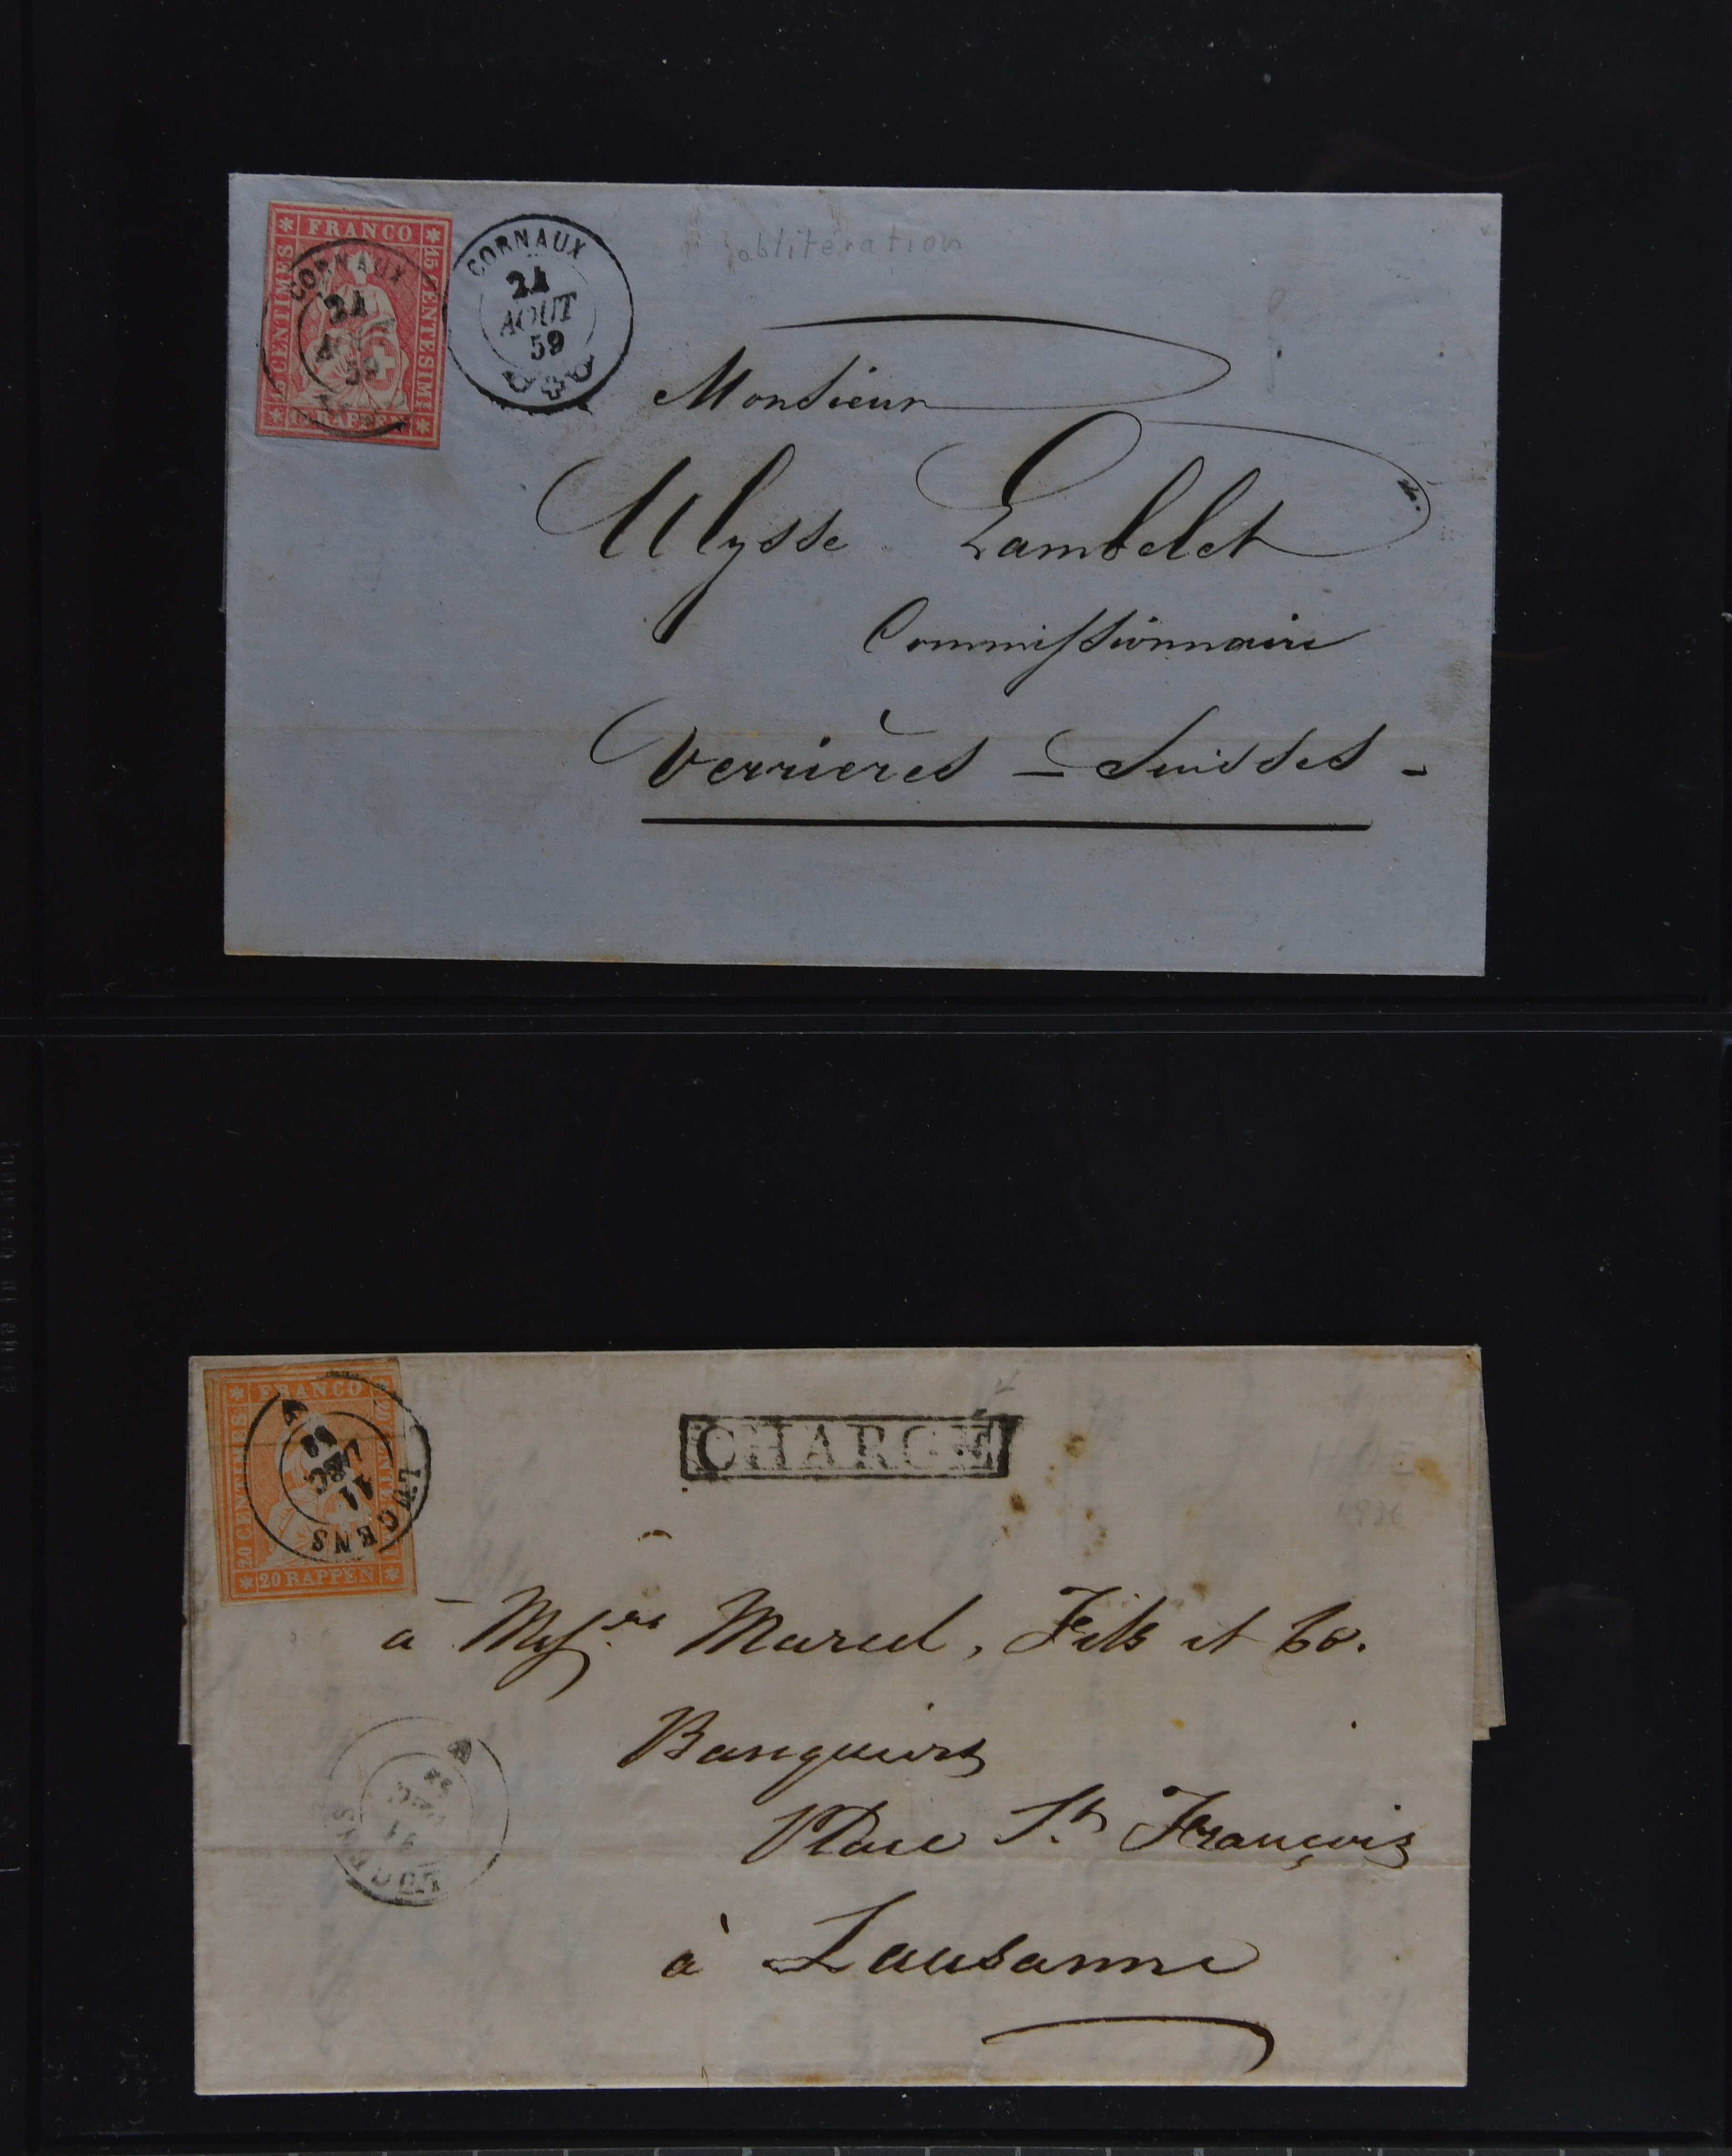 FRANCO
15 CENTIMES
15 CENTESIMI
15 RAPPEN
CORNAUX
CORNAUX
24
AOUT
59
obliteration
Monsieur
Ulysse Lambelet
Commissionnaire
Verrières - Suisses -
FRANCO
20 CENTIMES
20 RAPPEN
LUCENS
11
DEC
CHARGÉ
à Messrs Marcel, Fils et Co.
Banquiers
Place St François
à Lausanne
LUCENS
11